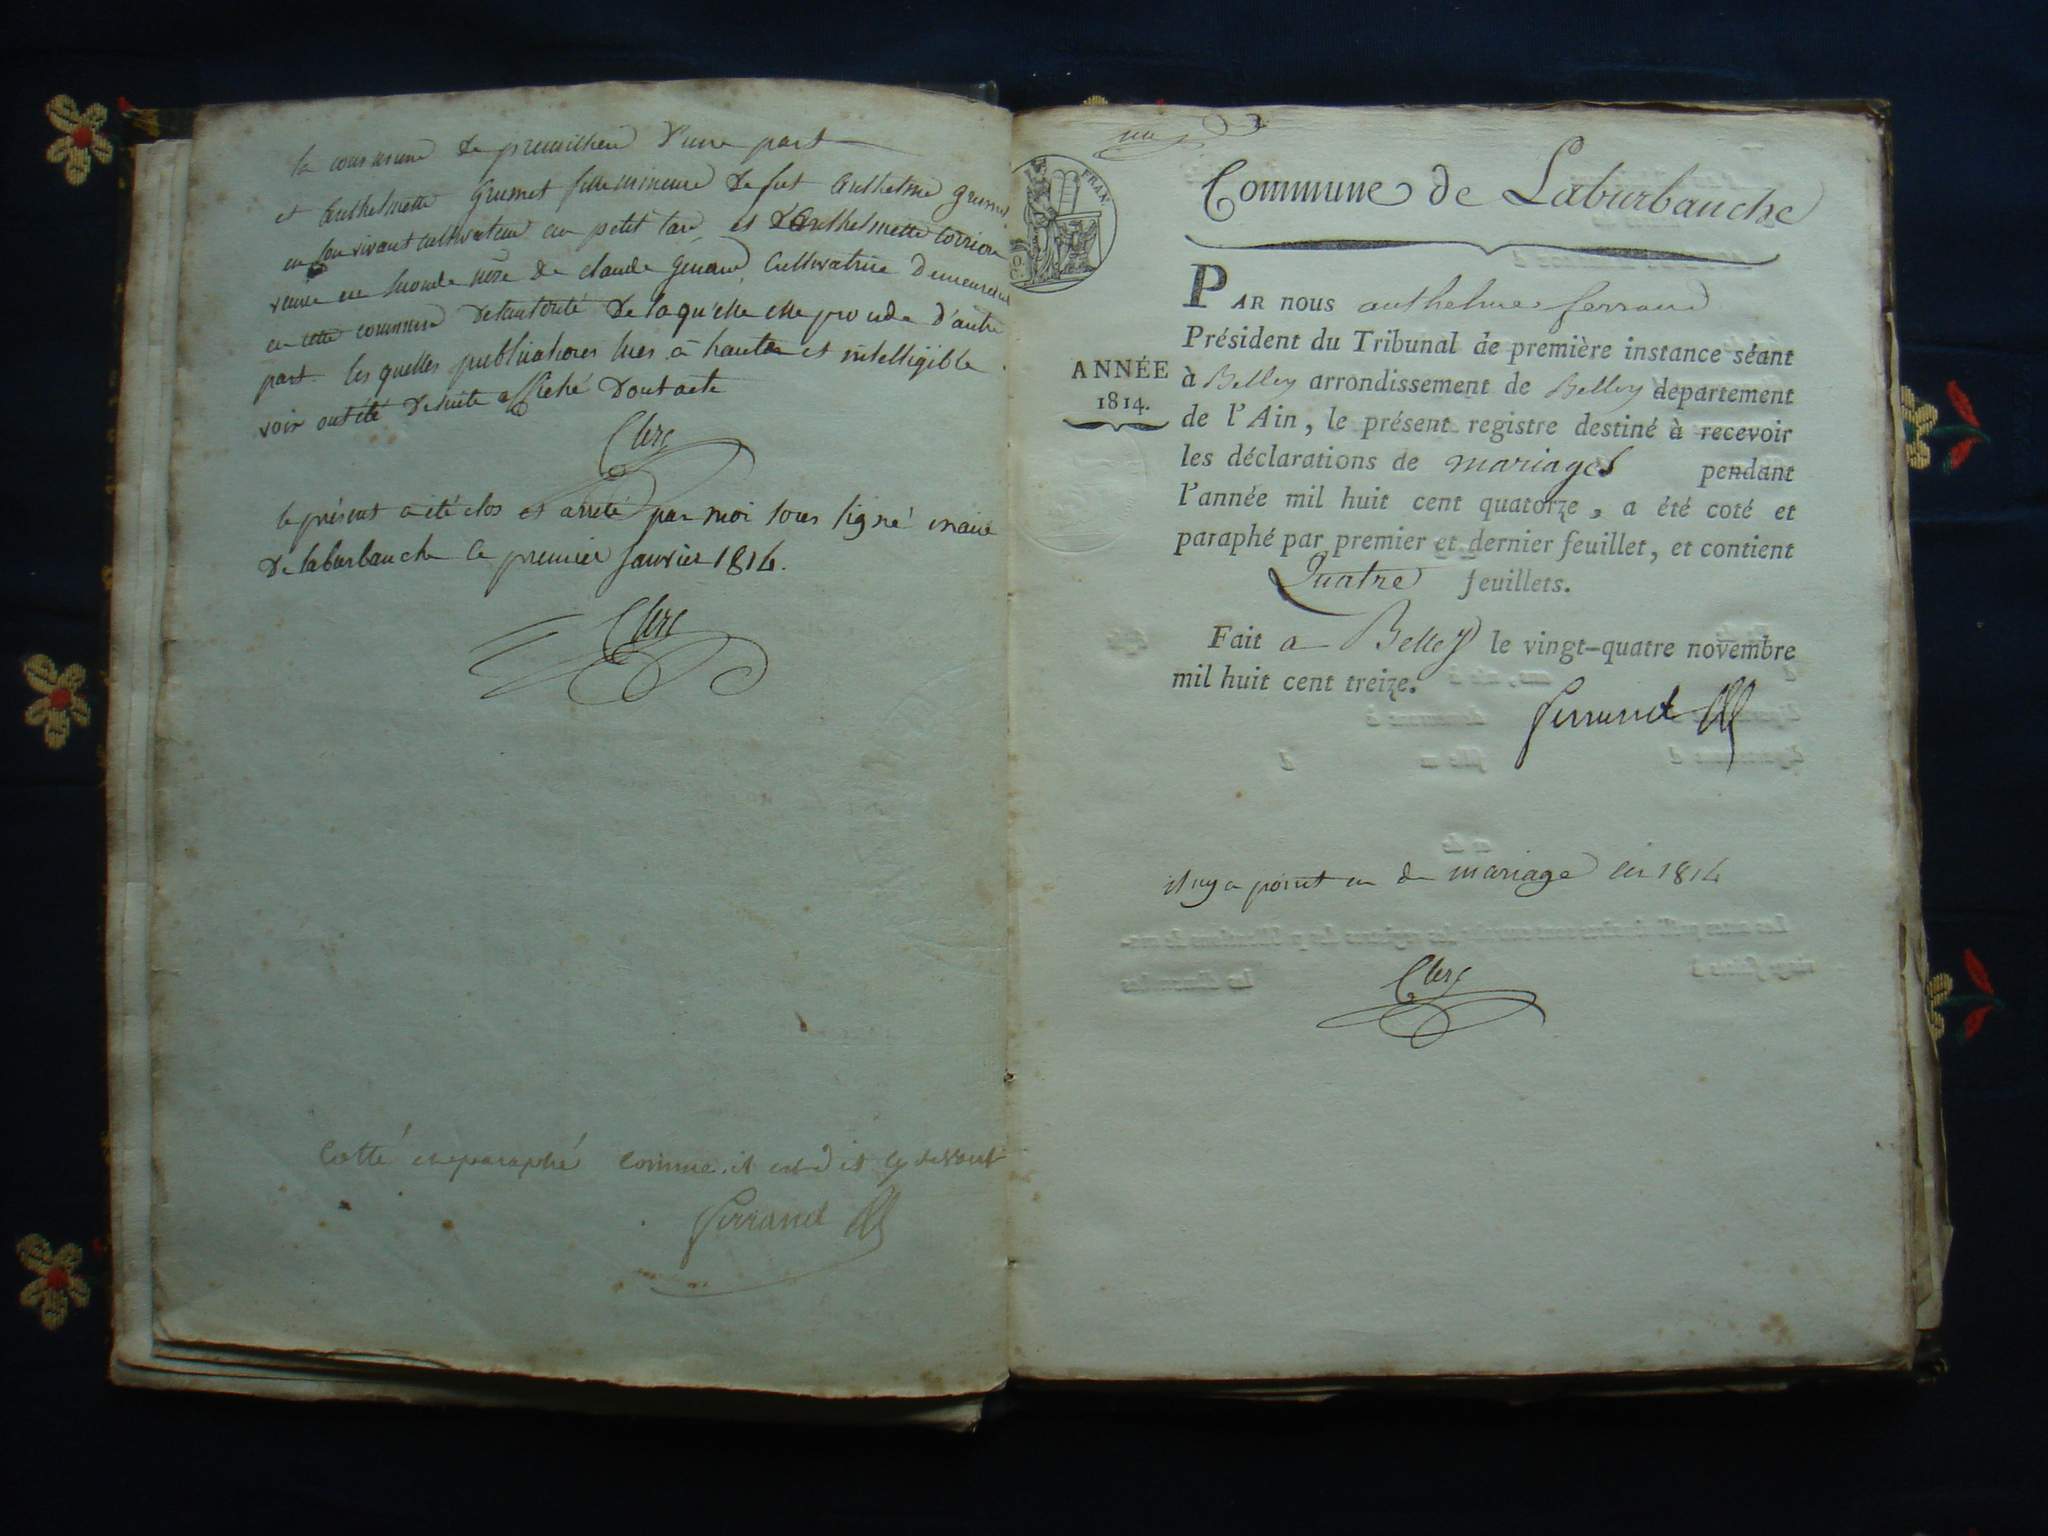 la commune de premillieu d'une part
et Anthelmette Grumet fille mineure de fut Anthelme grumet
en son vivant cultivateur au petit lac et d'Anthelmette
veuve en seconde nôse de claude genand cultivatrice demeurant
en cette commune de l'autorité de laquelle elle procede d'autre
part. les quelles publications lues à haute et intelligible
voix ont été de suite affiché dont acte
Clerc
le présent a été clos et arrêté par moi sous signé maire
de laburbanche le premier janvier 1814.
Clerc
Cotté et paraphé comme il est dit cy devant
Ferrand
un
FRAN.
50 C.
Commune de Laburbanche
ANNÉE
1814.
PAR nous anthelme ferrand
Président du Tribunal de première instance séant
à Belley arrondissement de Belley département
de l'Ain, le présent registre destiné à recevoir
les déclarations de mariages pendant
l'année mil huit cent quatorze, a été coté et
paraphé par premier et dernier feuillet, et contient
Quatre feuillets.
Fait a Belley le vingt-quatre novembre
mil huit cent treize.
Ferrand
il ny a point eu de mariage en 1814
Clerc